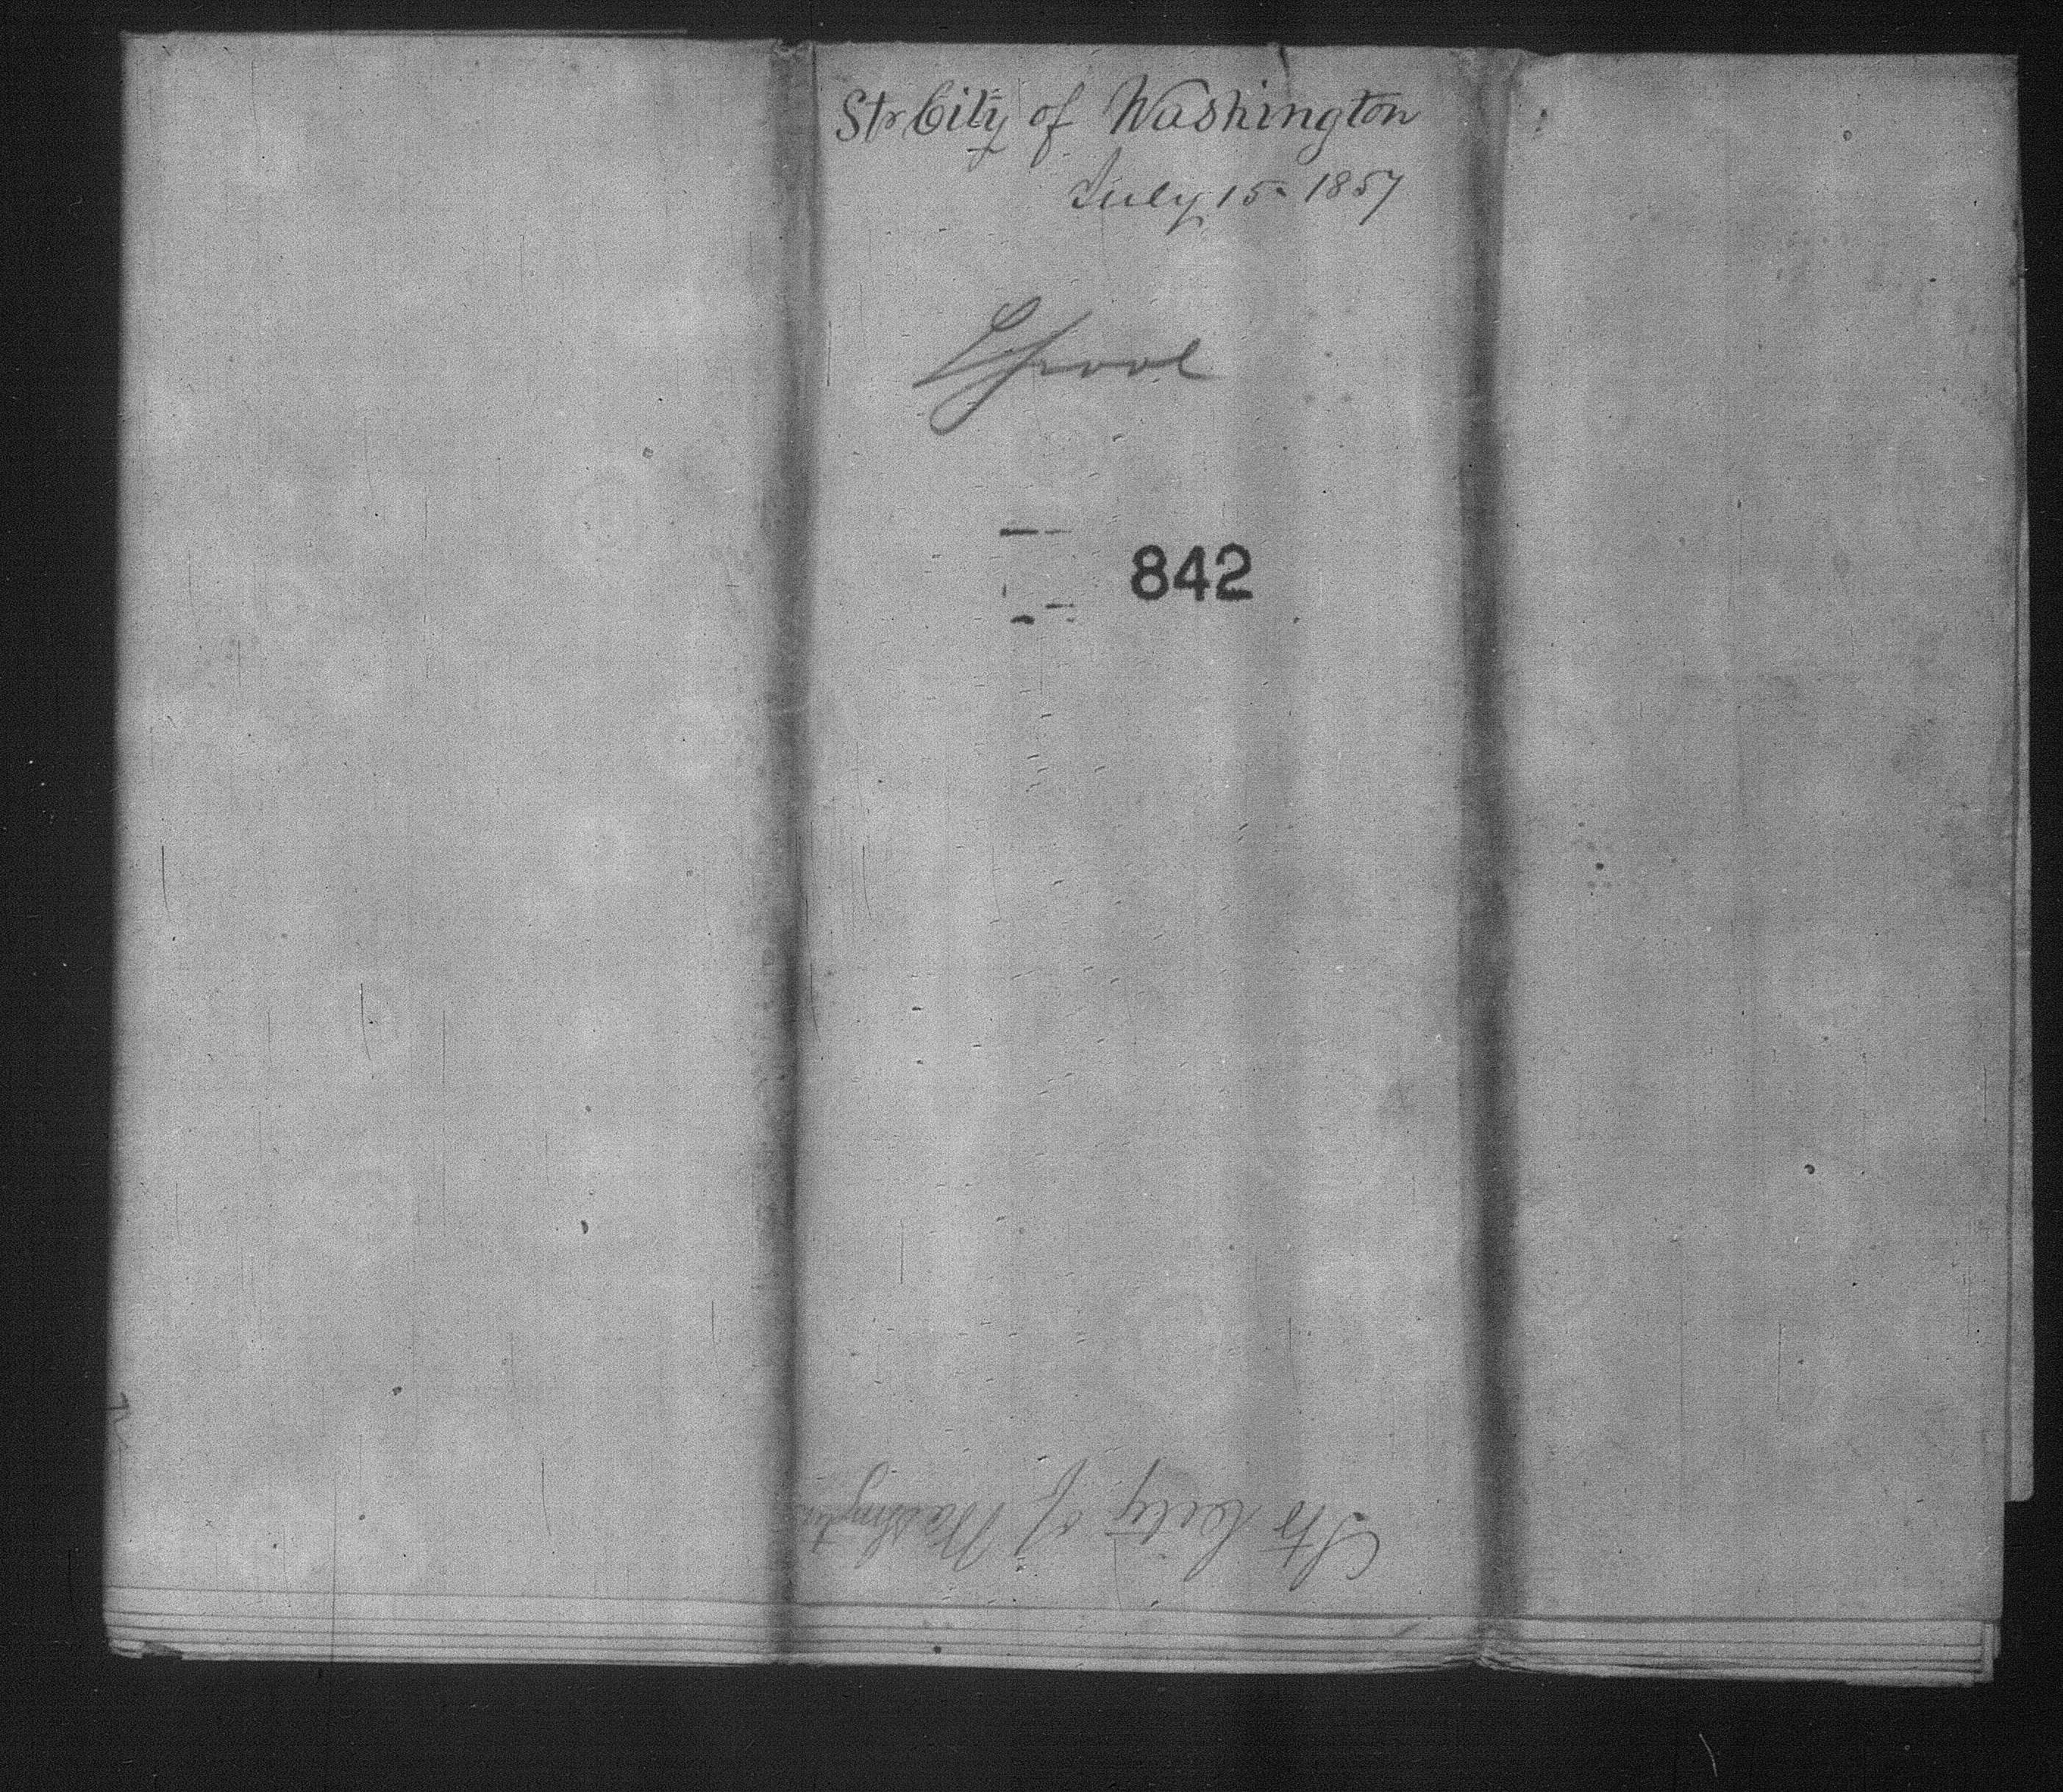 Str City of Washington
July 15 1857
Lpool
842
Str City of Washington